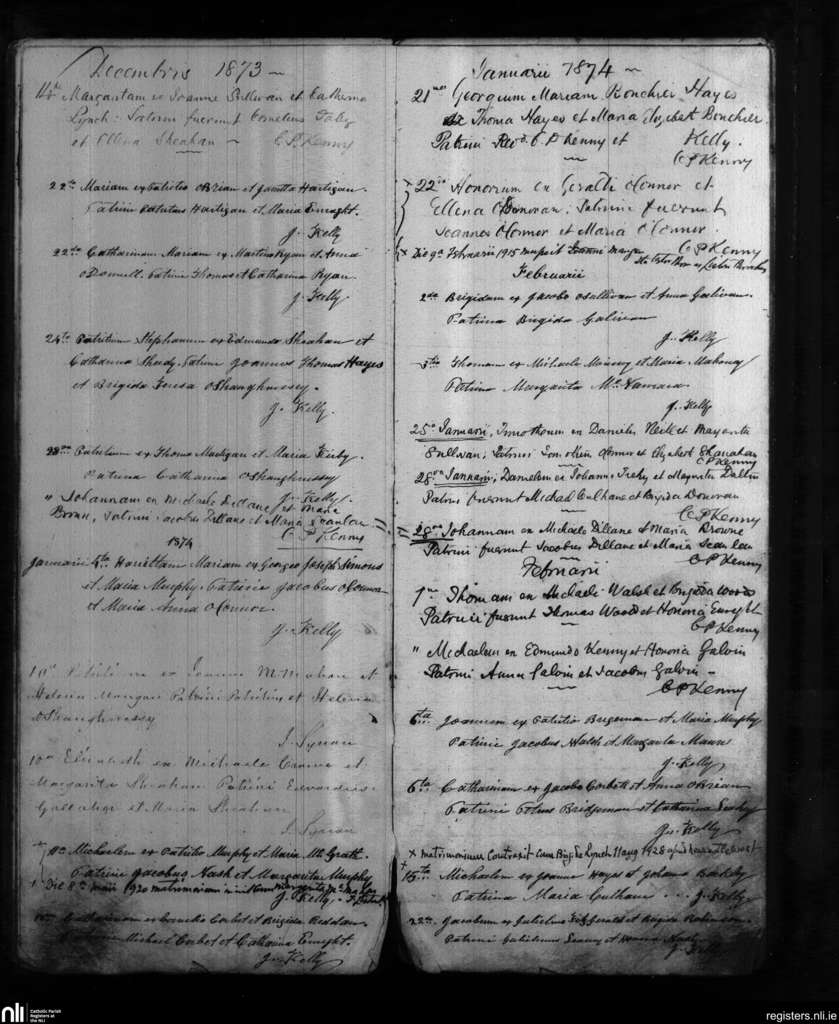 Decembris 1873
14ta Margaritam ex Joanne Sullivan et Catherina
Lynch: Sponsores fuerunt Cornelius Foley
et Ellena Sheahan C.P. Kenny
22da Mariam ex Patritio OBrien et Hartigan.
Patrini Patritius Hartigan et Maria Enright.
J. Kelly
22da Catharinam Mariam ex Martino Ryan et Anna
ODonnell. Patrini Thomas et Catharina Ryan.
J. Kelly
24ta Patritium Stephanum ex Edmundo Sheahan et
Catharina Sheedy. Patrini Joannes Thomas Hayes
et Brigida Teresa OShaughnessy.
J. Kelly.
Patritium ex Thoma Madigan et Maria Kirby.
Patrina Catharina OShaughnessy
J. Kelly.
" Johannam ex Michaele Dillane et Maria
Browne, Patrini Jacobus Dillane et Maria Scanlon
C P Kenny
1874
Januarii 4ta Henriettam Mariam ex Georgeo Joseph Simons
et Maria Murphy. Patrini Jacobus OConnor
et Maria Anna OConnor.
J. Kelly
10a ex Joanne McMahon et
Helena Mangan Patrini Patritius et Helena
OShaughnessy
10a Elizabeth ex Michaele et
Margarita Sheahan Patrini Edwardus
Gallagher et Maria Sheahan
11a Michaelem ex Patritio Murphy et Maria McGrath.
Patrini Jacobus Nash et Margarita Murphy
J. Kelly.
Die 8a Maii 1920 matrimonium
Catharinam ex Cornelio Corbet et Brigida Reddan.
Michael Corbet et Catharina Enright.
J. Kelly
Januarii 1874
21ma Georgium Mariam Bonchier Hayes
Thoma Hayes et Maria Elizabet Bonchier.
Patrini Revd. C P Kenny et Kelly.
C P Kenny
x 22da Honorium ex Geraldi OConnor et
Ellena ODonovan; Patrini fuerunt
Joannes OConnor et Maria OConnor.
C P Kenny
x Die 9a Februarii 1915
Februarii
2da Brigidam ex Jacobo OSullivan et Anna Galivan.
Patrina Brigida Galivan
J. Kelly
Thomam ex Michaele et Maria Mahony
Patrina Margarita McNamara.
J. Kelly
25a Januarii, Timotheum ex Daniele et Margarita
Sullivan; Patrini Connor et Elizabet Shanahan
C P Kenny
28va Januarii; Danielem ex Johanne Trehy et Margarita Dalton
Patrini fuerunt Michael Culhane et Brigida Donovan
C P Kenny
28va Johannam ex Michaele Dillane et Maria Browne
Patrini fuerunt Jacobus Dillane et Maria Scanlan
C P Kenny
Februarii
1ma Thomam ex Michaele Walsh et Brigida Woods
Patrini fuerunt Thomas Woods et Honoria Enright
C P Kenny
" Michaelem ex Edmundo Kenny et Honoria Galvin
Patrini Anna Galvin et Jacobus Galvin
C P Kenny
6ta Joannem ex Patritio Bridgeman et Maria Murphy
Patrini Jacobus Walsh et Margarita Mann
J. Kelly
6ta Catharinam ex Jacobo Corbett et Anna OBrien
Patrini Petrus Bridgeman et Catharina Leahy
Js. Kelly
x Matrimonium Contraxit cum Brigida Lynch 11 aug 1928
15ta Michaelem ex Joanne Hayes et Johanna Buckley
Patrina Maria Culhane . . . J. Kelly
22da Jacobum ex Patritio Fitzgerald et Brigida
Patrini Patritius et Honora
J. Kelly
nli
Catholic Parish
Registers at
the NLI
registers.nli.ie